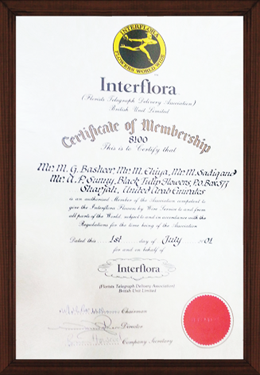 INTERFLORA
FLOWERS WORLD WIDE
Interflora
(Florists Telegraph Delivery Association)
British Unit Limited
Certificate of Membership
8100
This is to Certify that
Mr. M. G. Basheer, Mr. M. Thiya, Mr. M. Sadiq and
Mr. A. P. Sunny, Black Tulip Flowers, P.O. Box 577
Sharjah, United Arab Emirates
is an authorised Member of the Association empowered to
give the Interflora Flowers by Wire Service to and from
all parts of the World, subject to and in accordance with the
Regulations for the time being of the Association
Dated this 1st day of July
for and on behalf of
Interflora
(Florists Telegraph Delivery Association)
British Unit Limited
Chairman
Director
Company Secretary